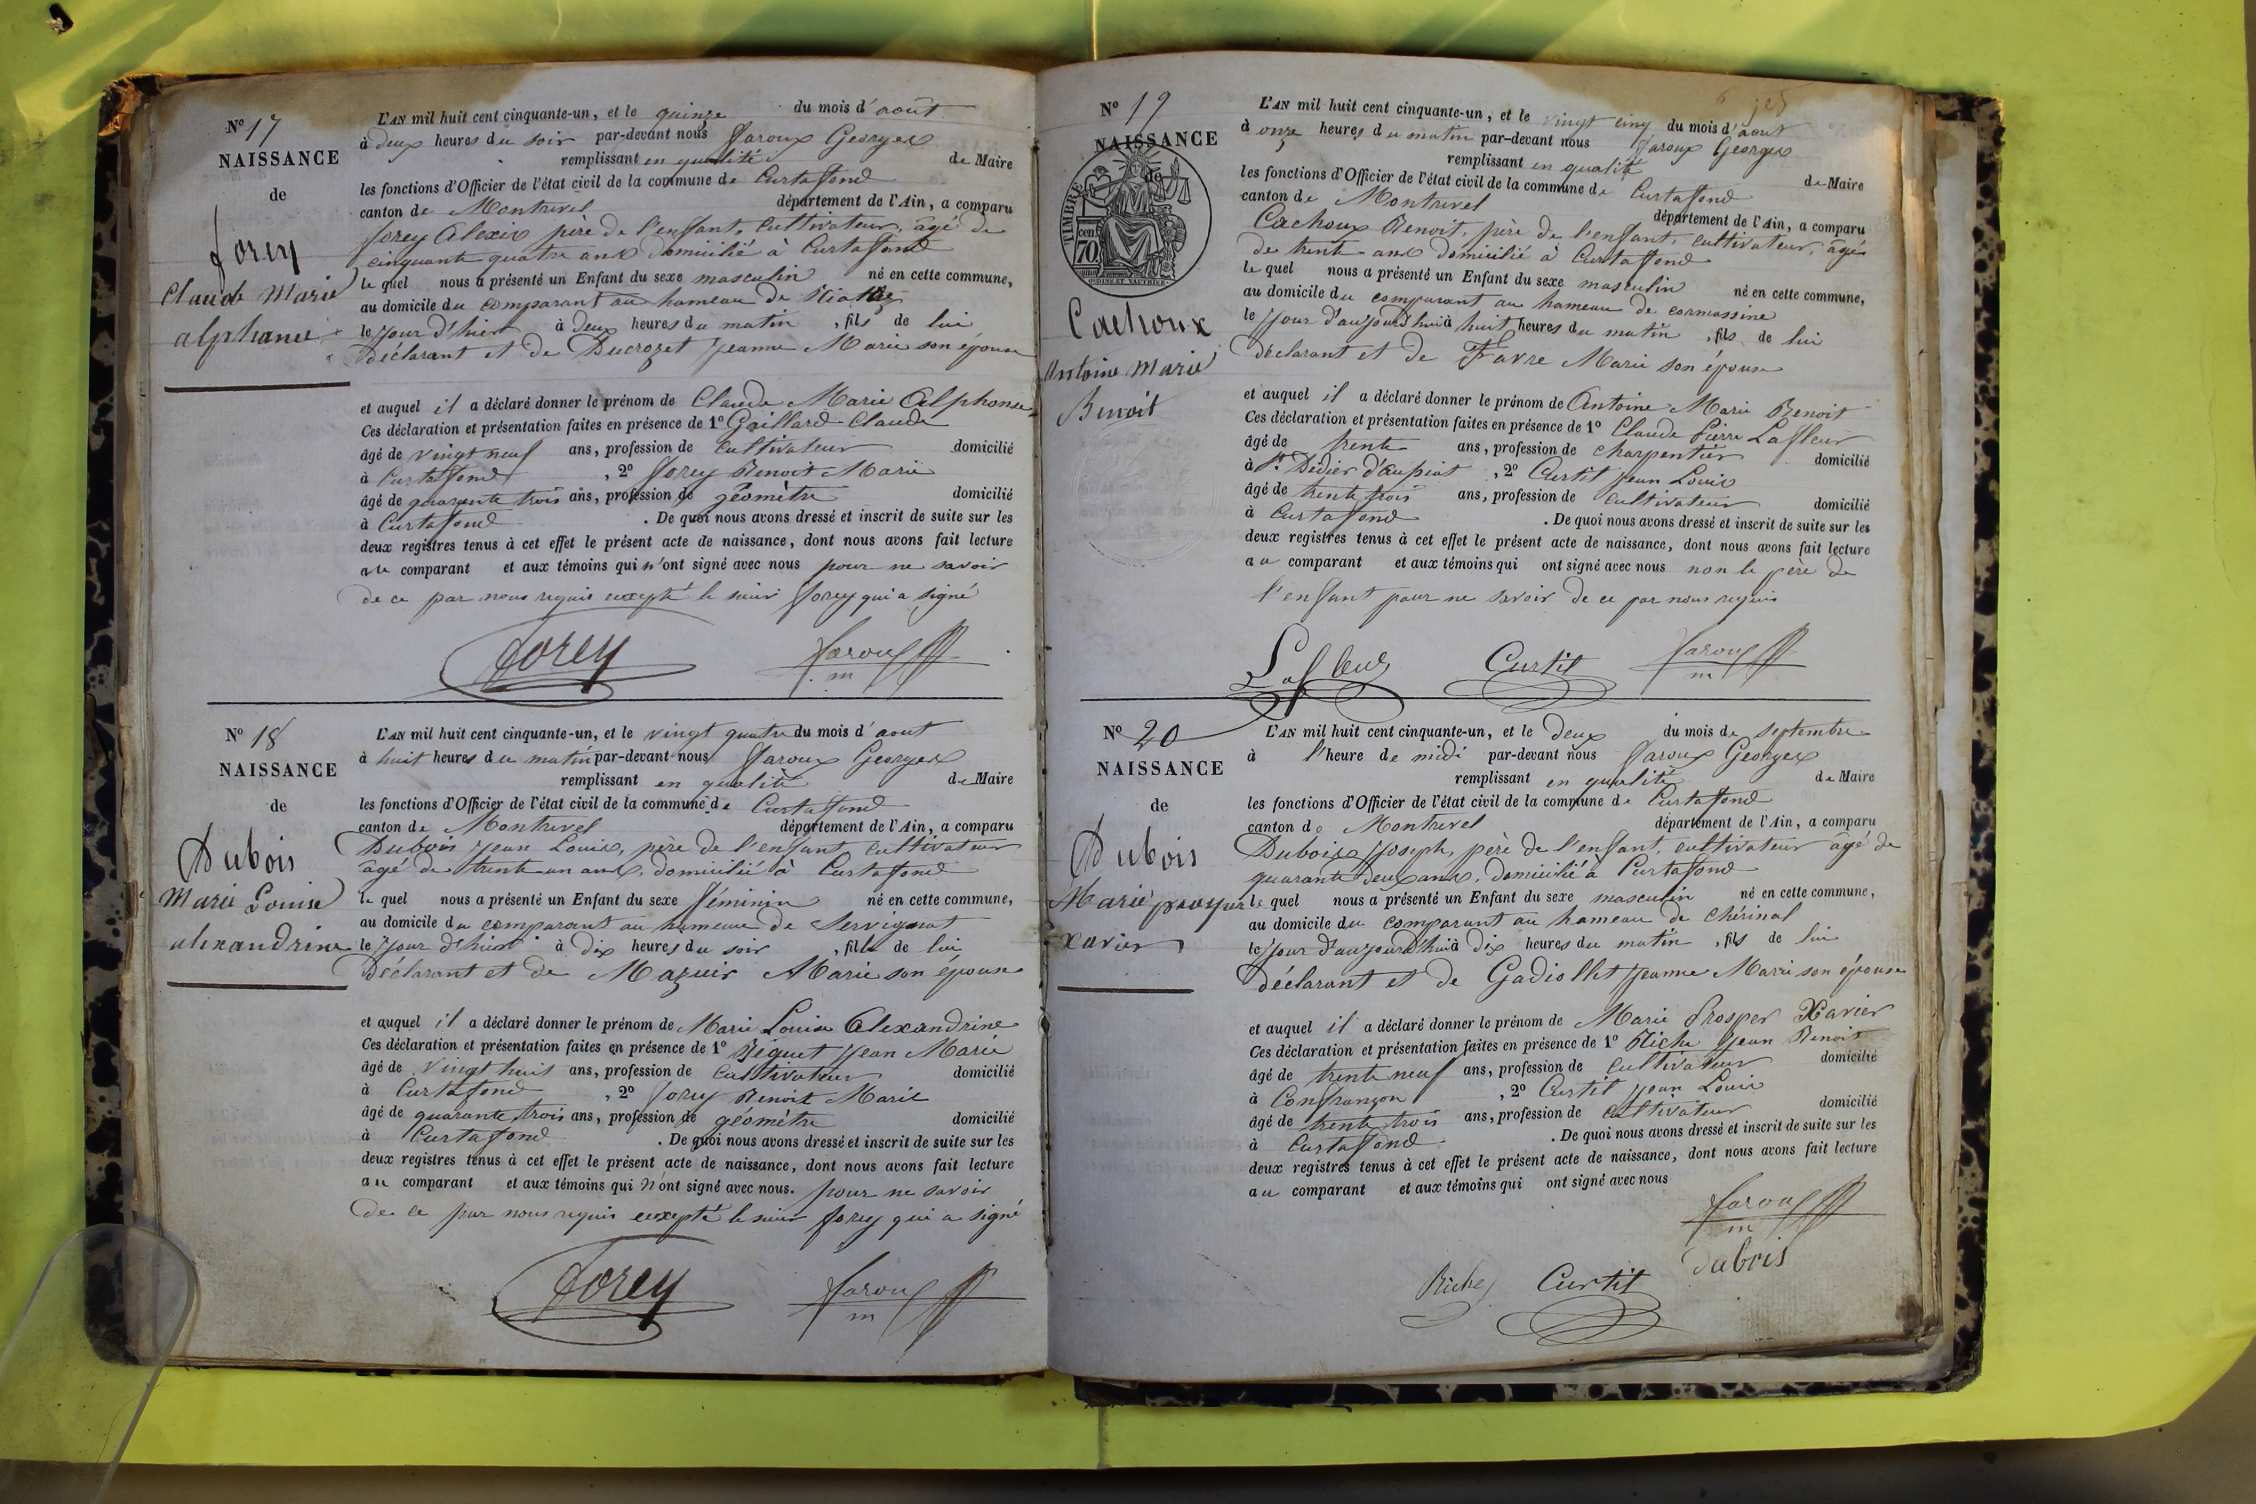 N° 17
NAISSANCE
de
forey
Claude Marie
alphonse
L'AN mil huit cent cinquante-un, et le quinze du mois d'août
à deux heures du soir par-devant nous faroux Georges
remplissant en qualité de Maire
les fonctions d'Officier de l'état civil de la commune de Curtafond
canton de Montrevel département de l'Ain, a comparu
forey Alexis père de l'enfant, cultivateur, âgé de
cinquante quatre ans domicilié à Curtafond
le quel nous a présenté un Enfant du sexe masculin né en cette commune,
au domicile du comparant au hameau de
le jour d'hier à deux heures du matin, fils de lui
Déclarant et de Ducrozet jeanne Marie son épouse
et auquel il a déclaré donner le prénom de Claude Marie Alphonse
Ces déclaration et présentation faites en présence de 1° Gaillard Claude
âgé de vingt neuf ans, profession de cultivateur domicilié
à Curtafond, 2° forey Benoit Marie
âgé de quarante trois ans, profession de géomètre domicilié
à Curtafond. De quoi nous avons dressé et inscrit de suite sur les
deux registres tenus à cet effet le présent acte de naissance, dont nous avons fait lecture
au comparant et aux témoins qui n'ont signé avec nous pour ne savoir
de ce par nous requis excepté le sieur forey qui a signé
forey faroux
m
N° 18
NAISSANCE
de
Dubois
Marie Louise
alexandrine
L'AN mil huit cent cinquante-un, et le vingt quatre du mois d'aout
à huit heures du matin par-devant nous faroux Georges
remplissant en qualité de Maire
les fonctions d'Officier de l'état civil de la commune de Curtafond
canton de Montrevel département de l'Ain, a comparu
Dubois jean Louis, père de l'enfant cultivateur
âgé de trente un ans, domicilié à Curtafond
le quel nous a présenté un Enfant du sexe féminin né en cette commune,
au domicile du comparant au hameau de Servignat
le jour d'hier à dix heures du soir, fille de lui
Déclarant et de Mazuir Marie son épouse
et auquel il a déclaré donner le prénom de Marie Louise Alexandrine
Ces déclaration et présentation faites en présence de 1° Béguet jean Marie
âgé de vingt huit ans, profession de cultivateur domicilié
à Curtafond, 2° forey Benoit Marie
âgé de quarante trois ans, profession de géomètre domicilié
à Curtafond. De quoi nous avons dressé et inscrit de suite sur les
deux registres tenus à cet effet le présent acte de naissance, dont nous avons fait lecture
au comparant et aux témoins qui n'ont signé avec nous. pour ne savoir
de ce par nous requis excepté le sieur forey qui a signé
forey faroux
m
N° 19
NAISSANCE
de
TIMBRE
70 cen
Cachoux
Antoine Marie
Benoit
L'AN mil huit cent cinquante-un, et le vingt cinq du mois d'aout
à onze heures du matin par-devant nous faroux Georges
remplissant en qualité de Maire
les fonctions d'Officier de l'état civil de la commune de Curtafond
canton de Montrevel département de l'Ain, a comparu
Cachoux Benoit, père de l'enfant, cultivateur, âgé
de trente ans domicilié à Curtafond
le quel nous a présenté un Enfant du sexe masculin né en cette commune,
au domicile du comparant au hameau de cormassine
le jour d'aujourd'hui à huit heures du matin, fils de lui
Déclarant et de Favre Marie son épouse
et auquel il a déclaré donner le prénom de Antoine Marie Benoit
Ces déclaration et présentation faites en présence de 1° Claude Pierre Lafleur
âgé de trente ans, profession de charpentier domicilié
à St Didier d'aussiat, 2° Curtil jean Louis
âgé de trente trois ans, profession de cultivateur domicilié
à Curtafond. De quoi nous avons dressé et inscrit de suite sur les
deux registres tenus à cet effet le présent acte de naissance, dont nous avons fait lecture
au comparant et aux témoins qui ont signé avec nous non le père de
l'enfant pour ne savoir de ce par nous requis
Lafleur Curtil faroux
m
N° 20
NAISSANCE
de
Dubois
Marie prosper
xavier
L'AN mil huit cent cinquante-un, et le deux du mois de septembre
à l'heure de midi par-devant nous faroux Georges
remplissant en qualité de Maire
les fonctions d'Officier de l'état civil de la commune de Curtafond
canton de Montrevel département de l'Ain, a comparu
Dubois joseph, père de l'enfant, cultivateur âgé de
quarante deux ans, domicilié à Curtafond
le quel nous a présenté un Enfant du sexe masculin né en cette commune,
au domicile du comparant au hameau de chérinal
le jour d'aujourd'hui à dix heures du matin, fils de lui
déclarant et de Gadiollet jeanne Marie son épouse
et auquel il a déclaré donner le prénom de Marie Prosper Xavier
Ces déclaration et présentation faites en présence de 1° Riche jean Benoit
âgé de trente neuf ans, profession de cultivateur domicilié
à Confrançon, 2° Curtil jean Louis
âgé de trente trois ans, profession de cultivateur domicilié
à Curtafond. De quoi nous avons dressé et inscrit de suite sur les
deux registres tenus à cet effet le présent acte de naissance, dont nous avons fait lecture
au comparant et aux témoins qui ont signé avec nous
faroux
m
dubois
Riche Curtil